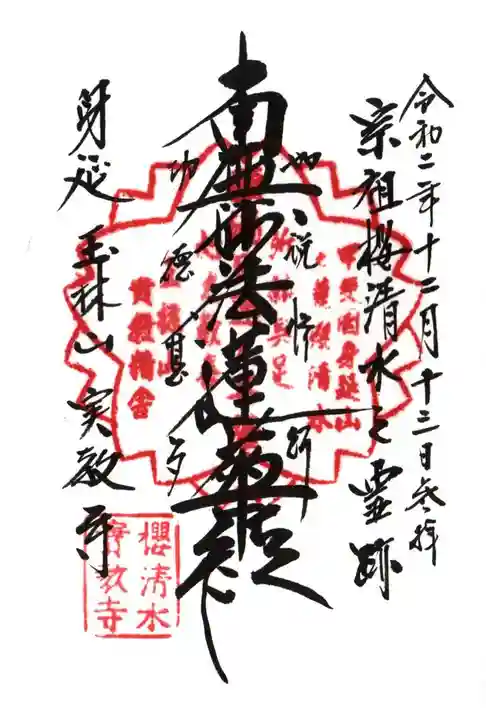 令和二年十二月十三日参拝
宗祖櫻清水之霊跡
如説修行
南無妙法蓮華経
功徳甚多
身延 玉林山 実教寺
甲斐国身延山
櫻清水
實教寺